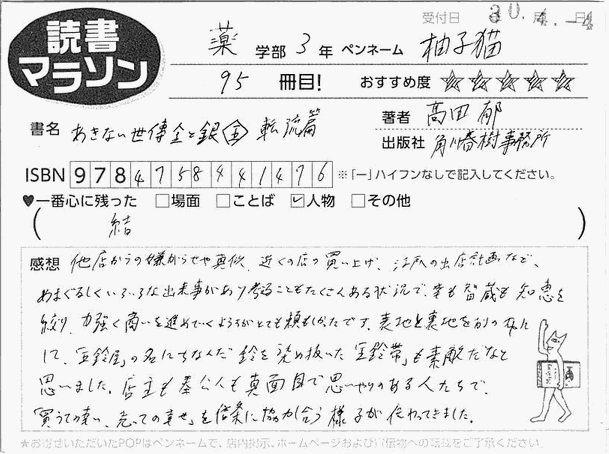 読書
マラソン
受付日 30. 4. -4
薬 学部 3 年 ペンネーム 柚子猫
95 冊目! おすすめ度 ☆☆☆☆☆
書名 あきない世傳 金と銀 五 転流篇
著者 高田 郁
出版社 角川春樹事務所
ISBN 9784758441476 ※「ー」ハイフンなしで記入してください。
♥一番心に残った □場面 □ことば ☑人物 □その他
( 結 )
感想 他店からの嫌がらせや真似、近くの店の買い上げ、江戸の出店計画など、
めまぐるしくいろいろな出来事があり考えることもたくさんある状況で、幸も智蔵も知恵を
絞り、力強く商いを進めていくようすがとても頼もしかったです。表地と裏地を別の布に
して、「五鈴屋」の名にちなんだ鈴を染め抜いた「五鈴帯」も素敵だなと
思いました。店主も奉公人も真面目で思いやりのある人たちで、
「買うての幸い、売っての幸せ」を信条に協力し合う様子が伝わってきました。
★お寄せいただいたPOPはペンネームで、店内掲示、ホームページおよび宣伝物への転載をご了承ください。